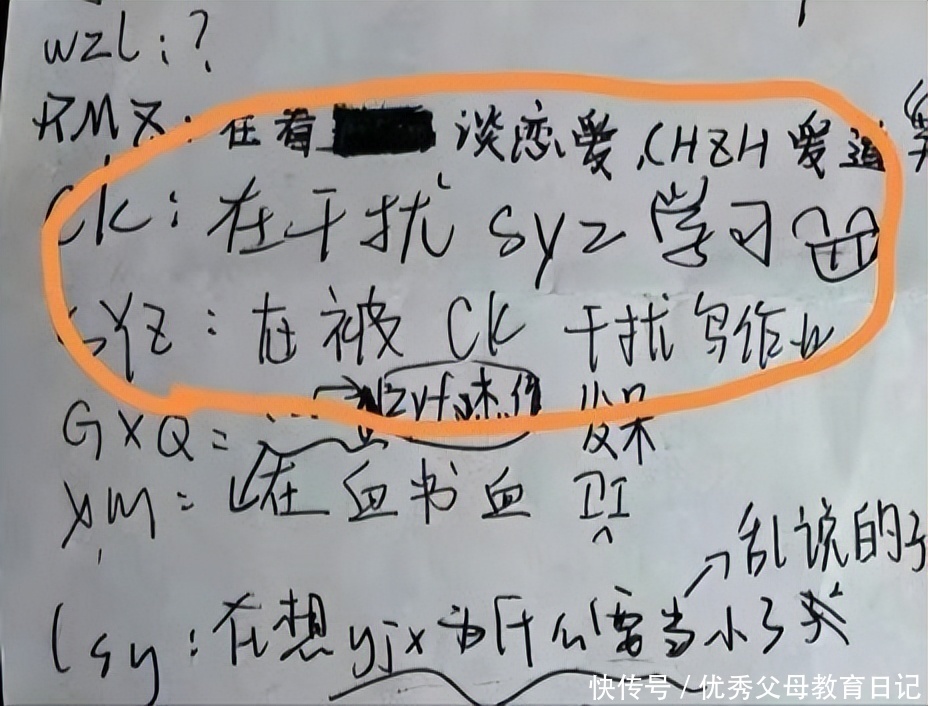 wzl:?
RMX:在看 谈恋爱,CHZH 爱
CK:在干扰 syz 学习
SYZ:在被 CK 干扰写作业
GXQ= 发呆
XM=在 血书血
乱说的
lsy:在想yjx为什么要当小
快传号/优秀父母教育日记